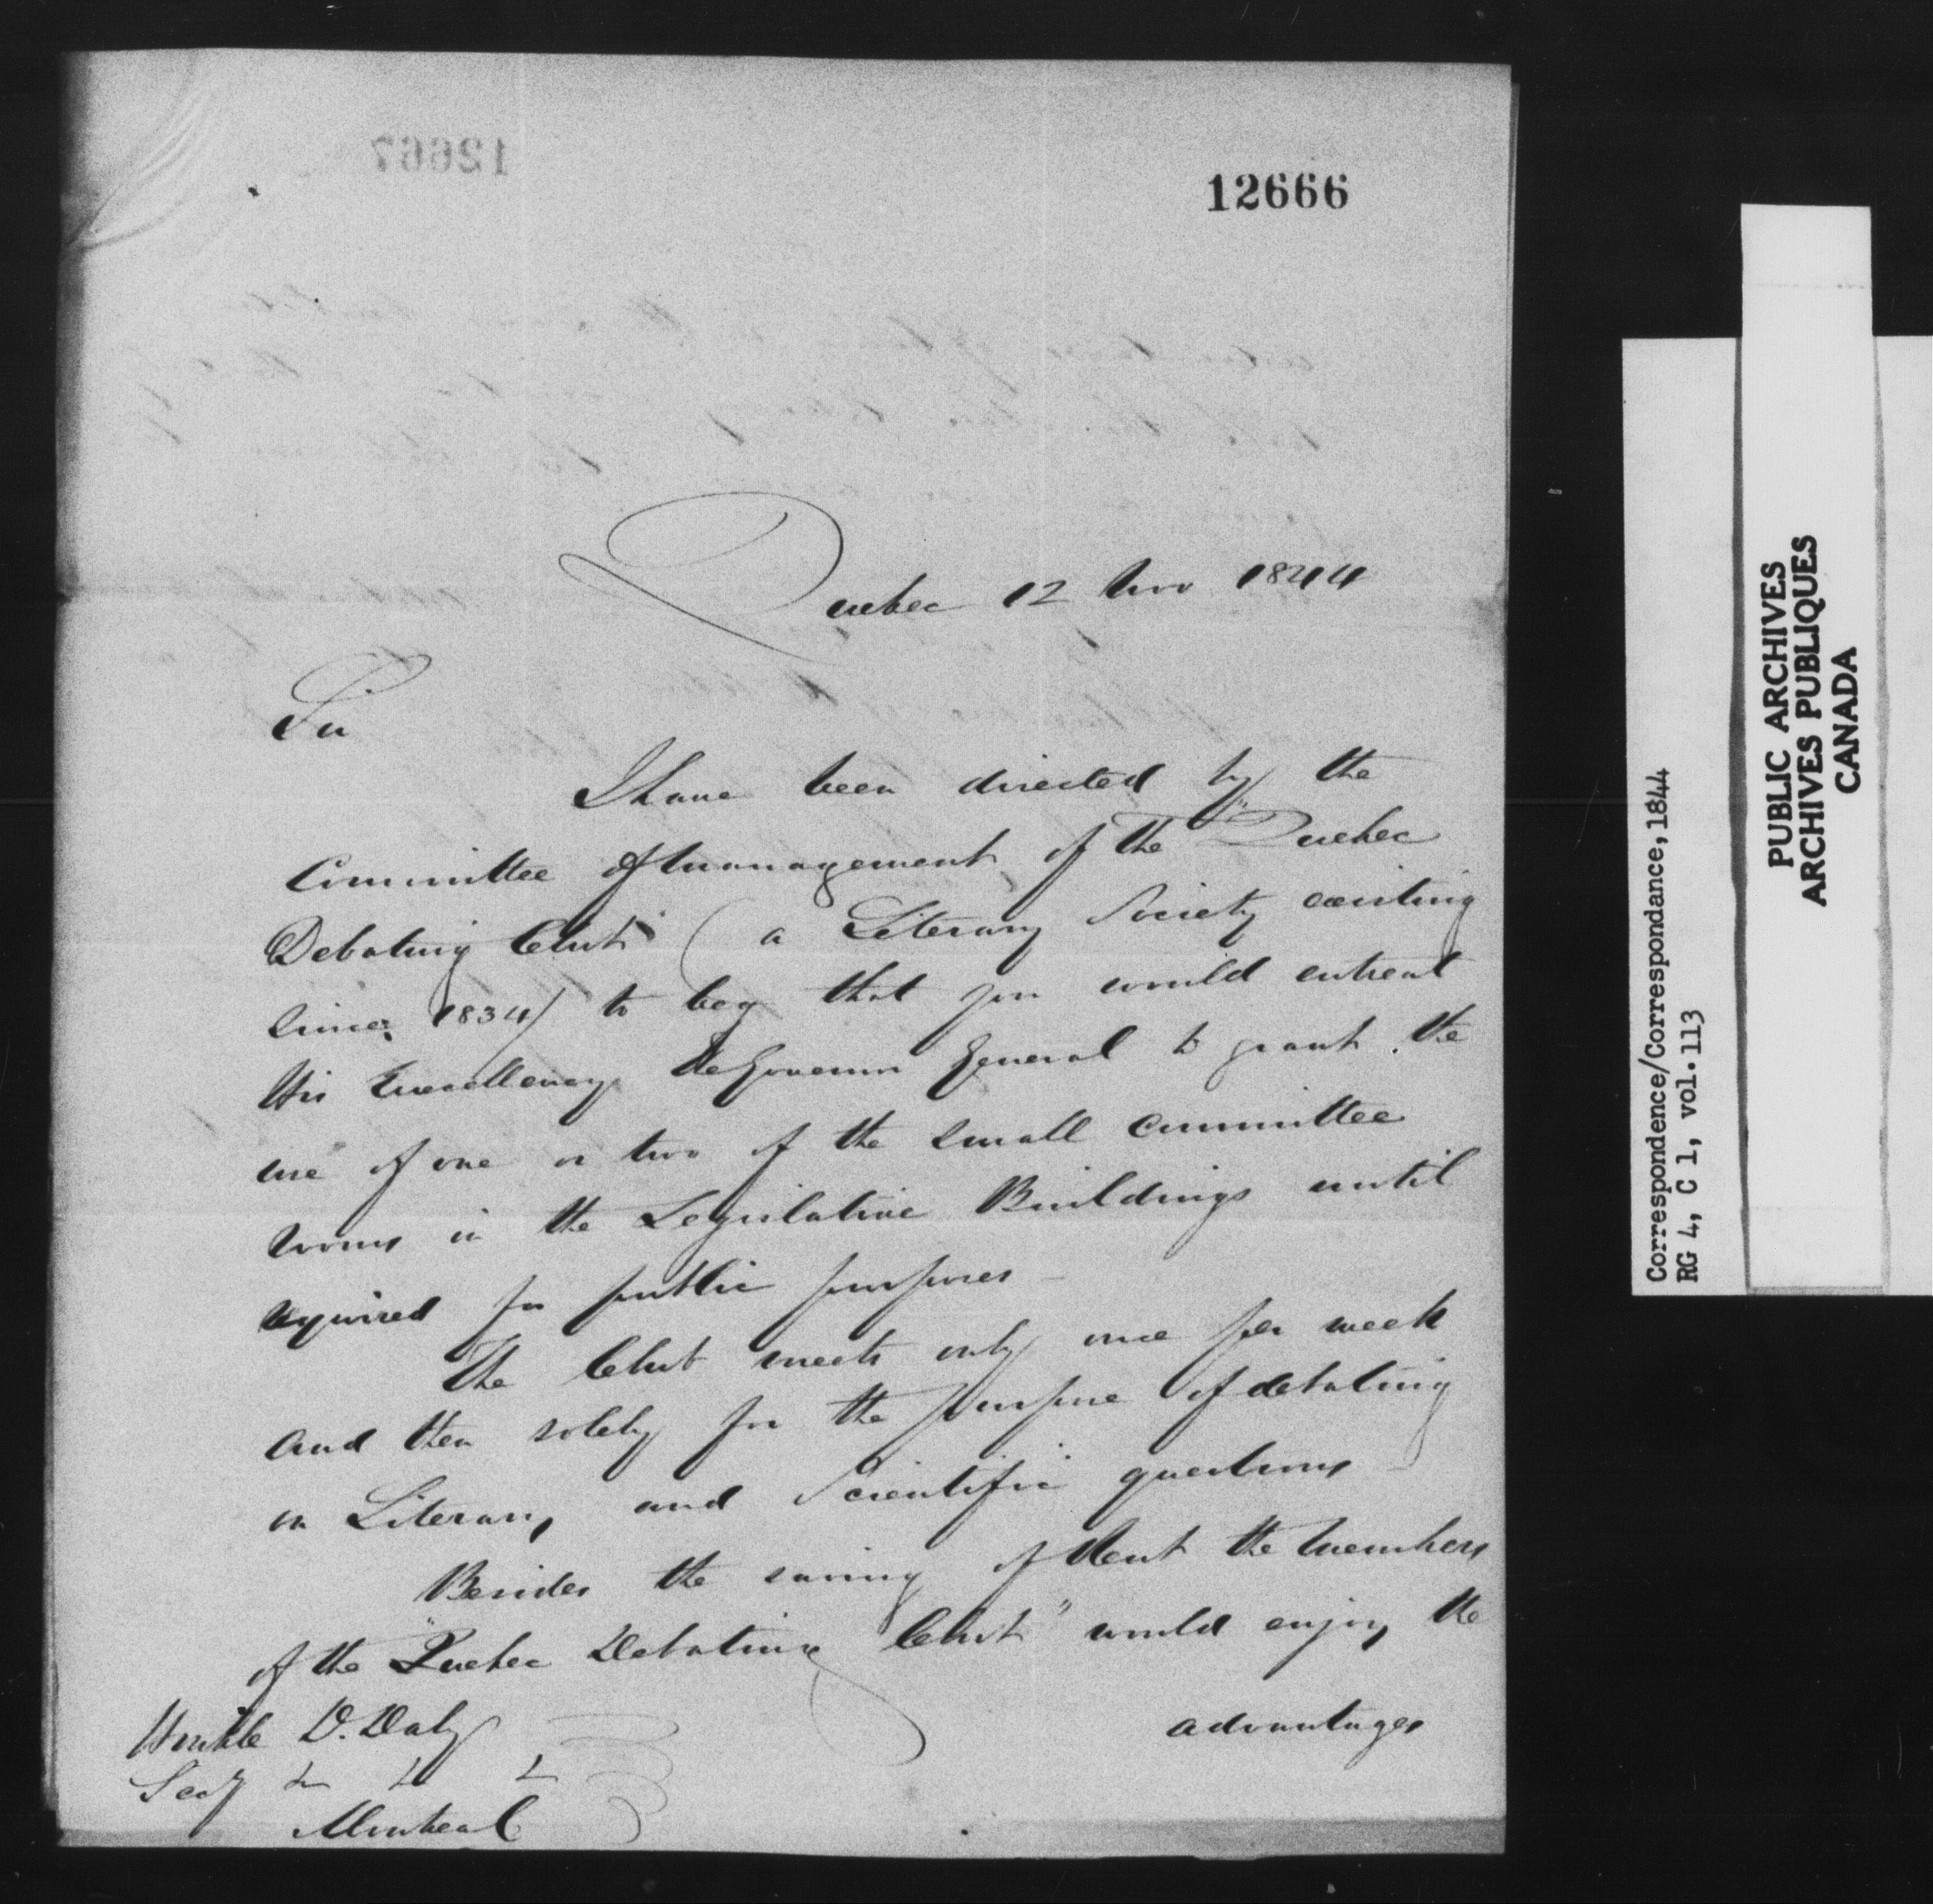 12667
12666
Quebec 12 Nov 1844
Sir
I have been directed by the
Committee of management of the "Quebec
Debating Club" (a Literary Society existing
since 1834) to beg that you would entreat
His Excellency the Governor General to grant the
use of one or two of the small committee
rooms in the Legislative Buildings until
required for public purposes -
The Club meets only once per week
and then solely for the purpose of debating
on Literary and Scientific questions -
Besides the saving of Rent the members
of the "Quebec Debating Club" would enjoy the
advantages
Honble D. Daly
Secy &c &c &c
Montreal
Correspondence/Correspondance, 1844
RG 4, C 1, vol. 113
PUBLIC ARCHIVES
ARCHIVES PUBLIQUES
CANADA